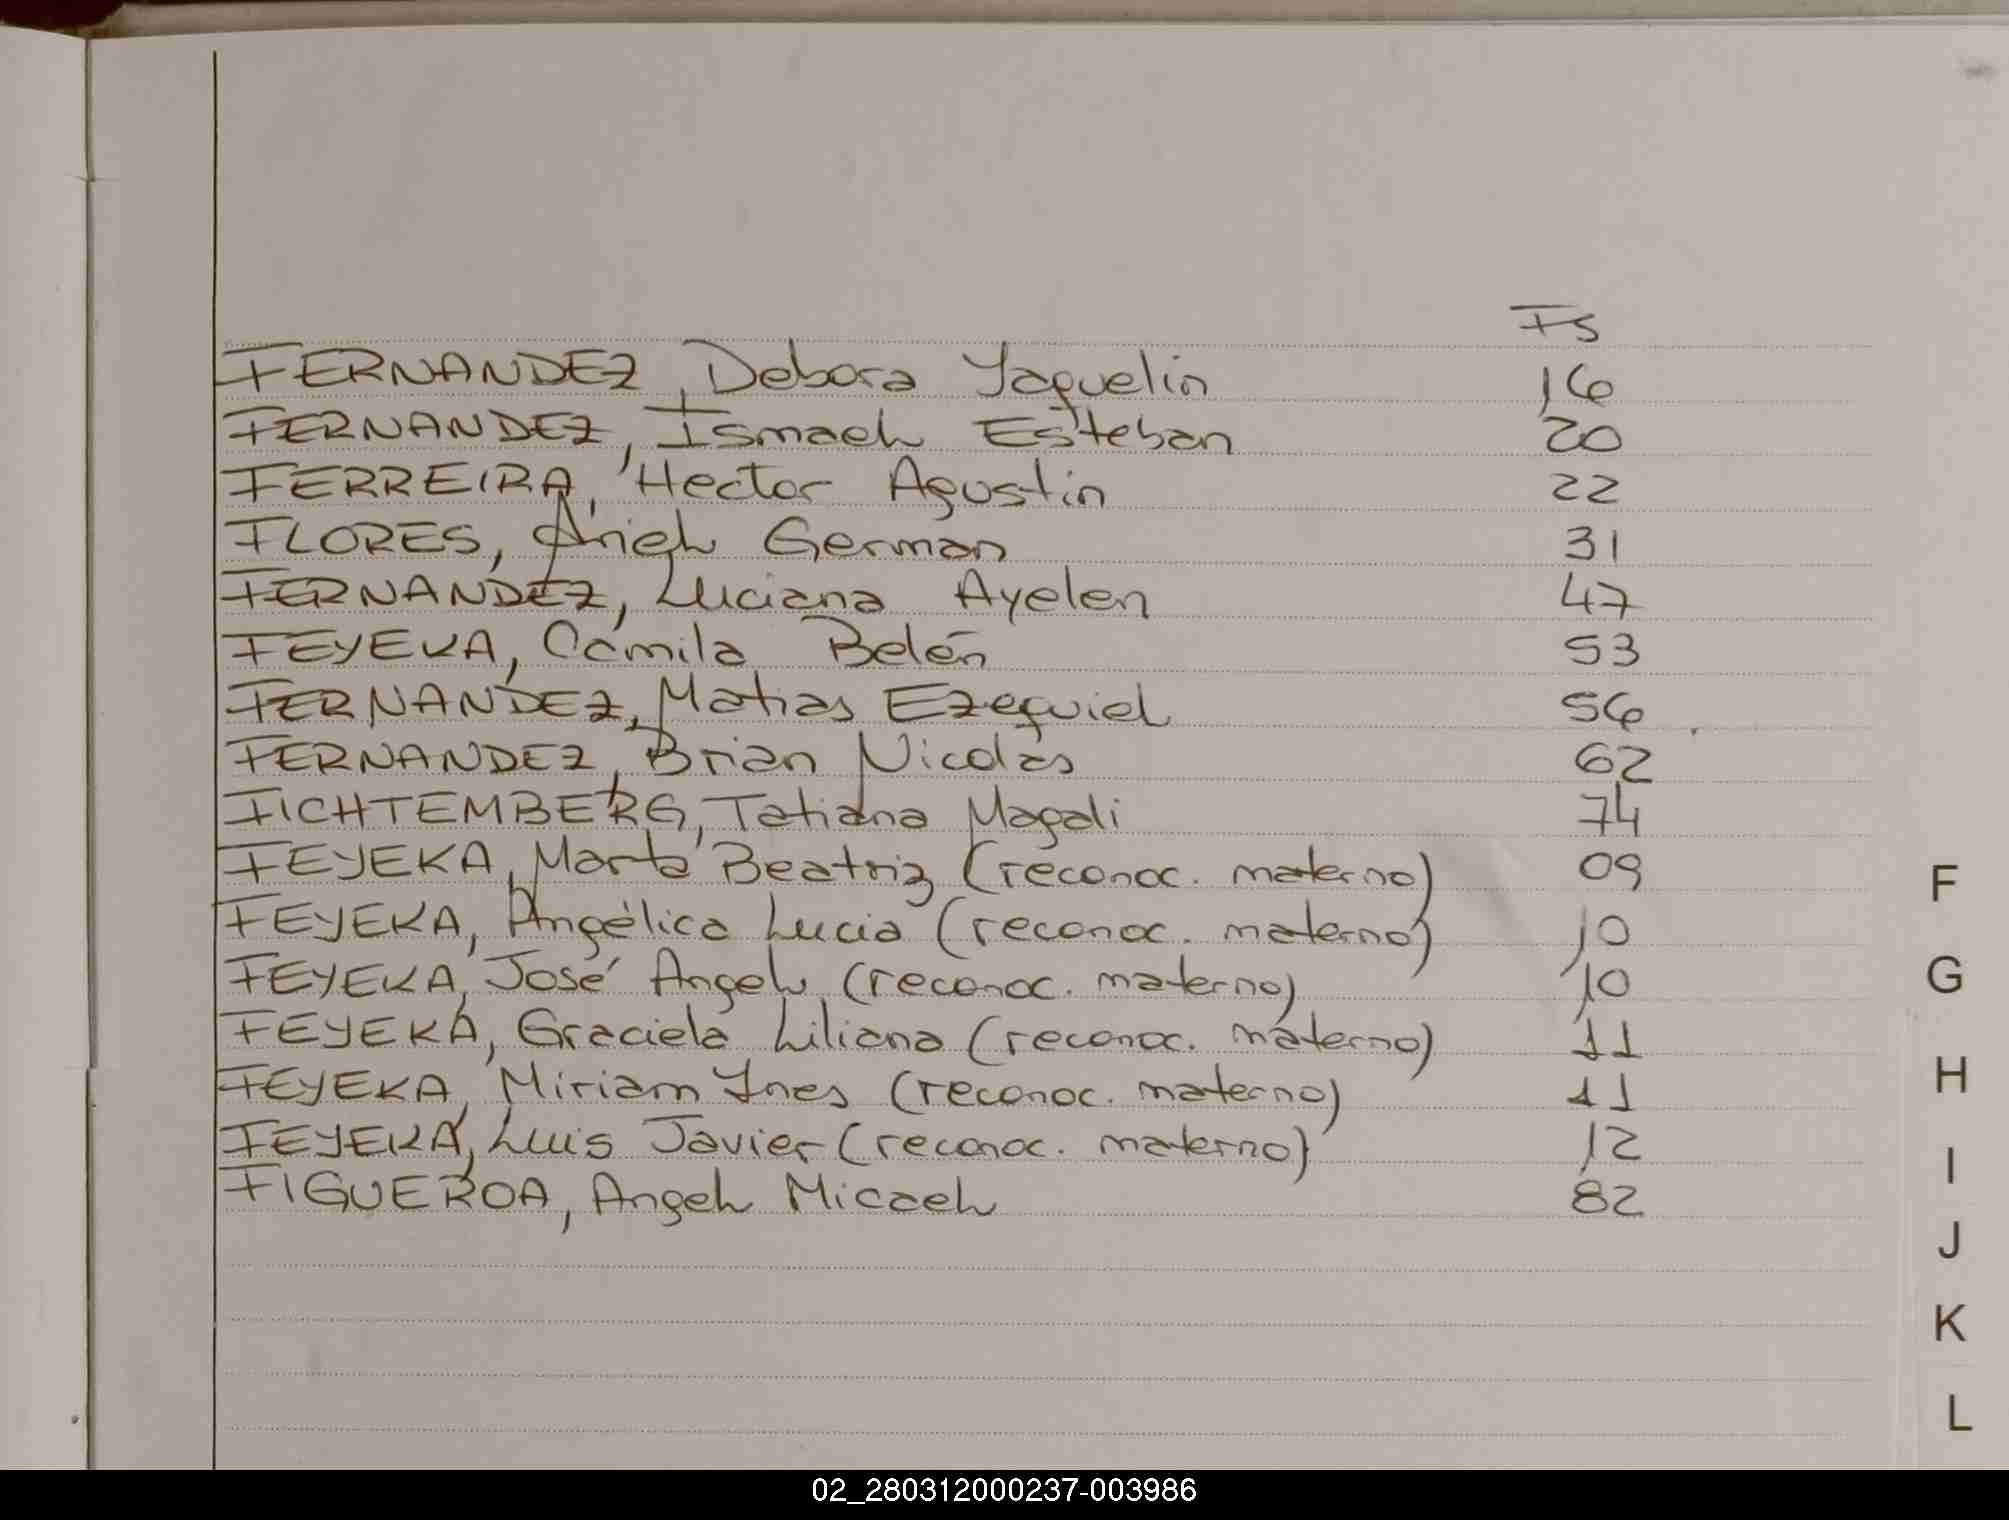 Fs
FERNANDEZ, Debora Yaquelin 16
FERNANDEZ, Ismael Esteban 20
FERREIRA, Hector Agustin 22
FLORES, Ariel German 31
FERNANDEZ, Luciana Ayelen 47
FEYEKA, Camila Belén 53
FERNANDEZ, Matias Ezequiel 56
FERNANDEZ, Brian Nicolás 62
FICHTEMBERG, Tatiana Magali 74
FEYEKA, Marta Beatriz (reconoc. materno) 09
FEYEKA, Angélica Lucia (reconoc. materno) 10
FEYEKA, José Angel (reconoc. materno) 10
FEYEKA, Graciela Liliana (reconoc. materno) 11
FEYEKA, Miriam Ynes (reconoc. materno) 11
FEYEKA, Luis Javier (reconoc. materno) 12
FIGUEROA, Angel Micael 82
F
G
H
I
J
K
L
02_280312000237-003986